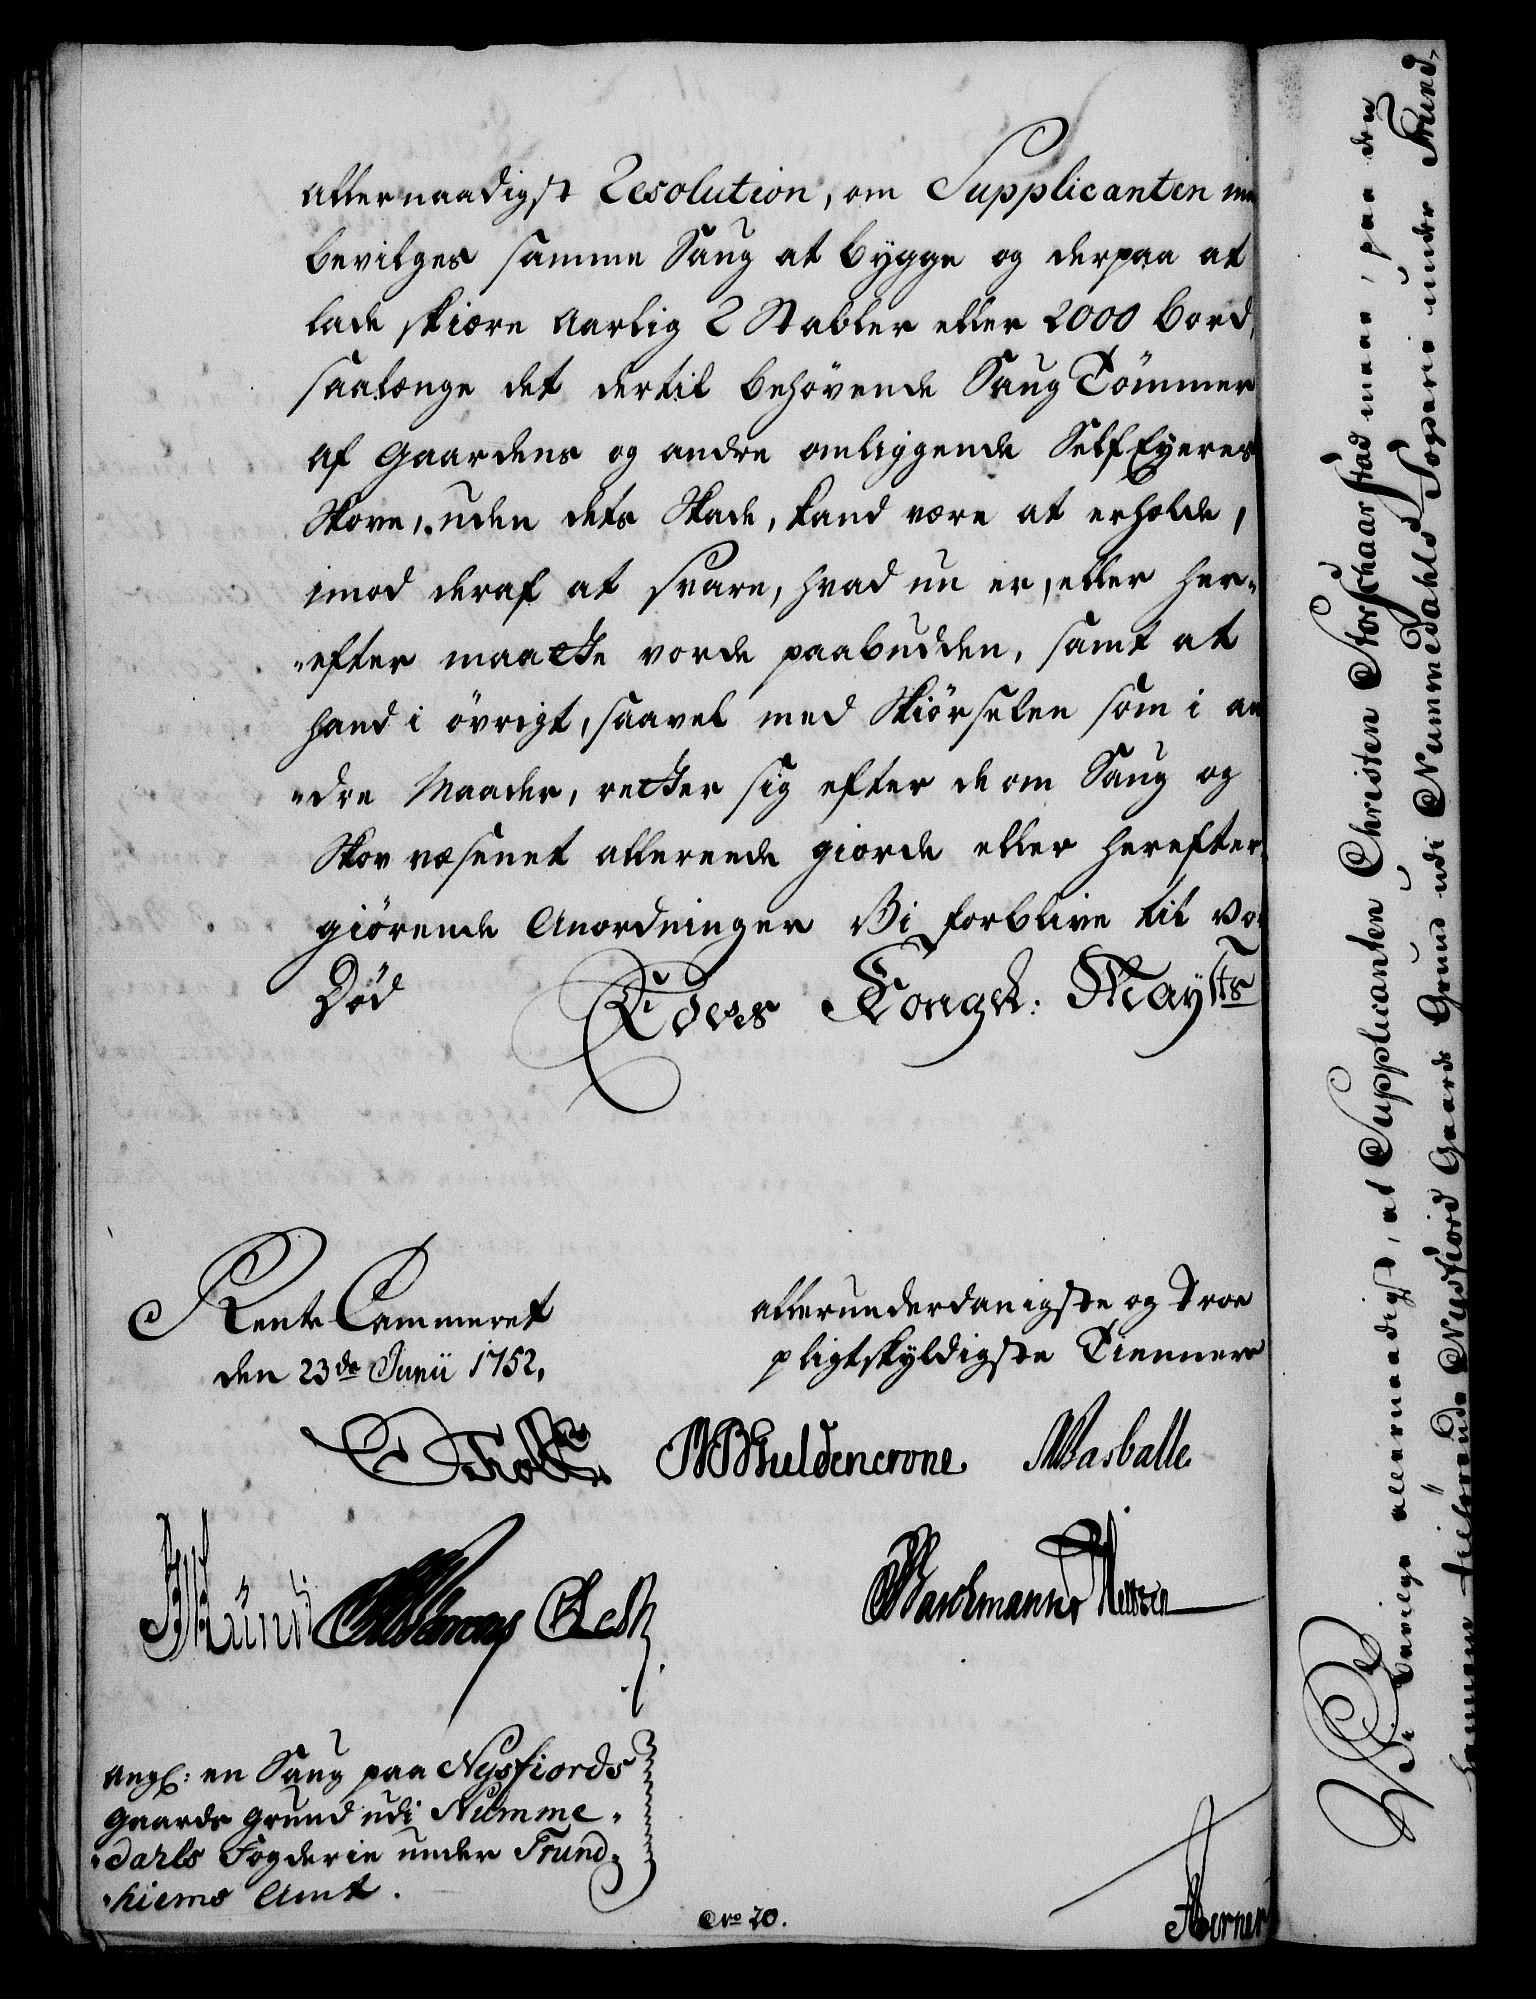 allernaadigst Resolution, om Supplicanten
bevilges samme Saug at bygge og derpaa at
lade skiære aarlig 2 Stabler eller 2000 bord,
saalænge det dertil behövende Saug Tömmer
af Gaardens og andre omliggende Self Eyeres
Skove, uden dets Skade, kand være at erholde,
imod deraf at svare, hvad nu er, eller her-
efter maatte vorde paabudden, samt at
hand i övrigt, saavel med Skiörselen som i an
dre Maader, retter sig efter de om Saug og
Skov væsenet allereede giorde eller herefter
giörende Anordninger Vi forblive til vor
Död
Eders Kongel: Mayts
Rente Cammeret
den 23de Junii 1752,
allerunderdanigste og Troe
pligtskyldigste Tiennere
Guldencrone Wasballe
Angl: en Saug paa Nysfiords
Gaards Grund udi Numme-
dahls Fogderie under Trund-
hiems Amt.
No 20.
Vi bevilge allernaadigst, at Supplicanten Christen Storschaarstad maae, paa den
hannem tilhörende Nysfiord Gaards Grund udi Nummedahls Fogderi under Trund-